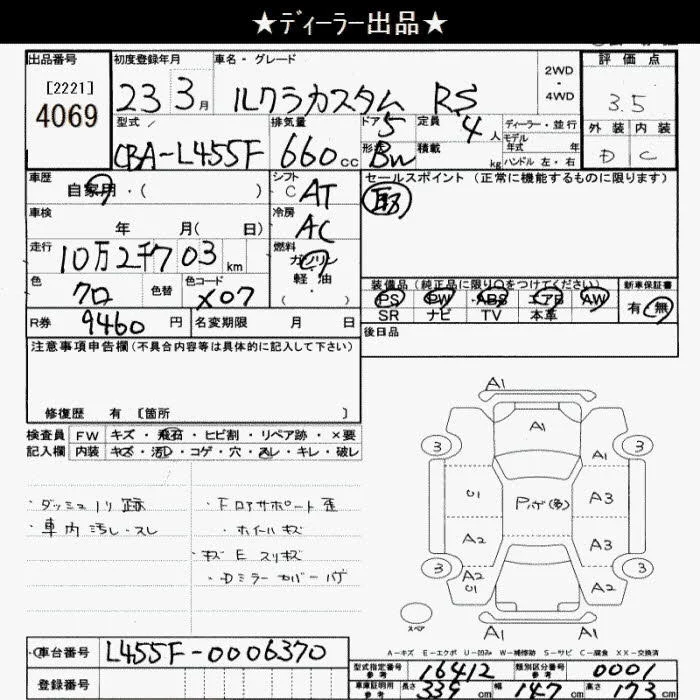 ★ディーラー出品★
出品番号
[2221]
4069
初度登録年月
23 3月
車名・グレード
ルクラカスタム RS
2WD
4WD
評価点
3.5
外装 内装
D C
型式
CBA-L455F
排気量
660cc
ドア
5
形状
Bn
定員
4人
積載
kg
ディーラー・並行
モデル
年式 年
ハンドル 左・右
車歴
自家用・( )
シフト
C AT
セールスポイント (正常に機能するものに限ります)
取
車検
年 月( 日)
冷房
AC
走行
10万2千703km
燃料
ガソリン
軽油
( )
色
クロ
色替
色コード
X07
装備品(純正品に限り〇をつけてください)
PS PW ABS エアB AW
SR ナビ TV 本革
新車保証書
有・無
R券
9460円
名変期限 月 日
後日品
注意事項申告欄(不具合内容等は具体的に記入して下さい)
修復歴 有 [箇所 ]
検査員 FW キズ・飛石・ヒビ割・リペア跡・×要
記入欄 内装 キズ・汚れ・コゲ・穴・スレ・キレ・破レ
・ダッシュノリ跡
・車内汚レ・スレ
・Fロアサポート歪
・ホイールキズ
・キズ E スリキズ
・Dミラーカバーハゲ
A1
A1
3
A1
3
U1
Pハゲ(多)
A3
A2
A3
3
A2
U1
A2
3
スペア
A1
A-キズ E-エクボ U-凹み W-補修跡 S-サビ C-腐食 XX-交換済
車台番号
L455F-0006370
登録番号
型式指定番号
参考
16412
類別区分番号
参考
0001
車庫証明用
参考
長さ 339cm 幅 147cm 高さ 173cm